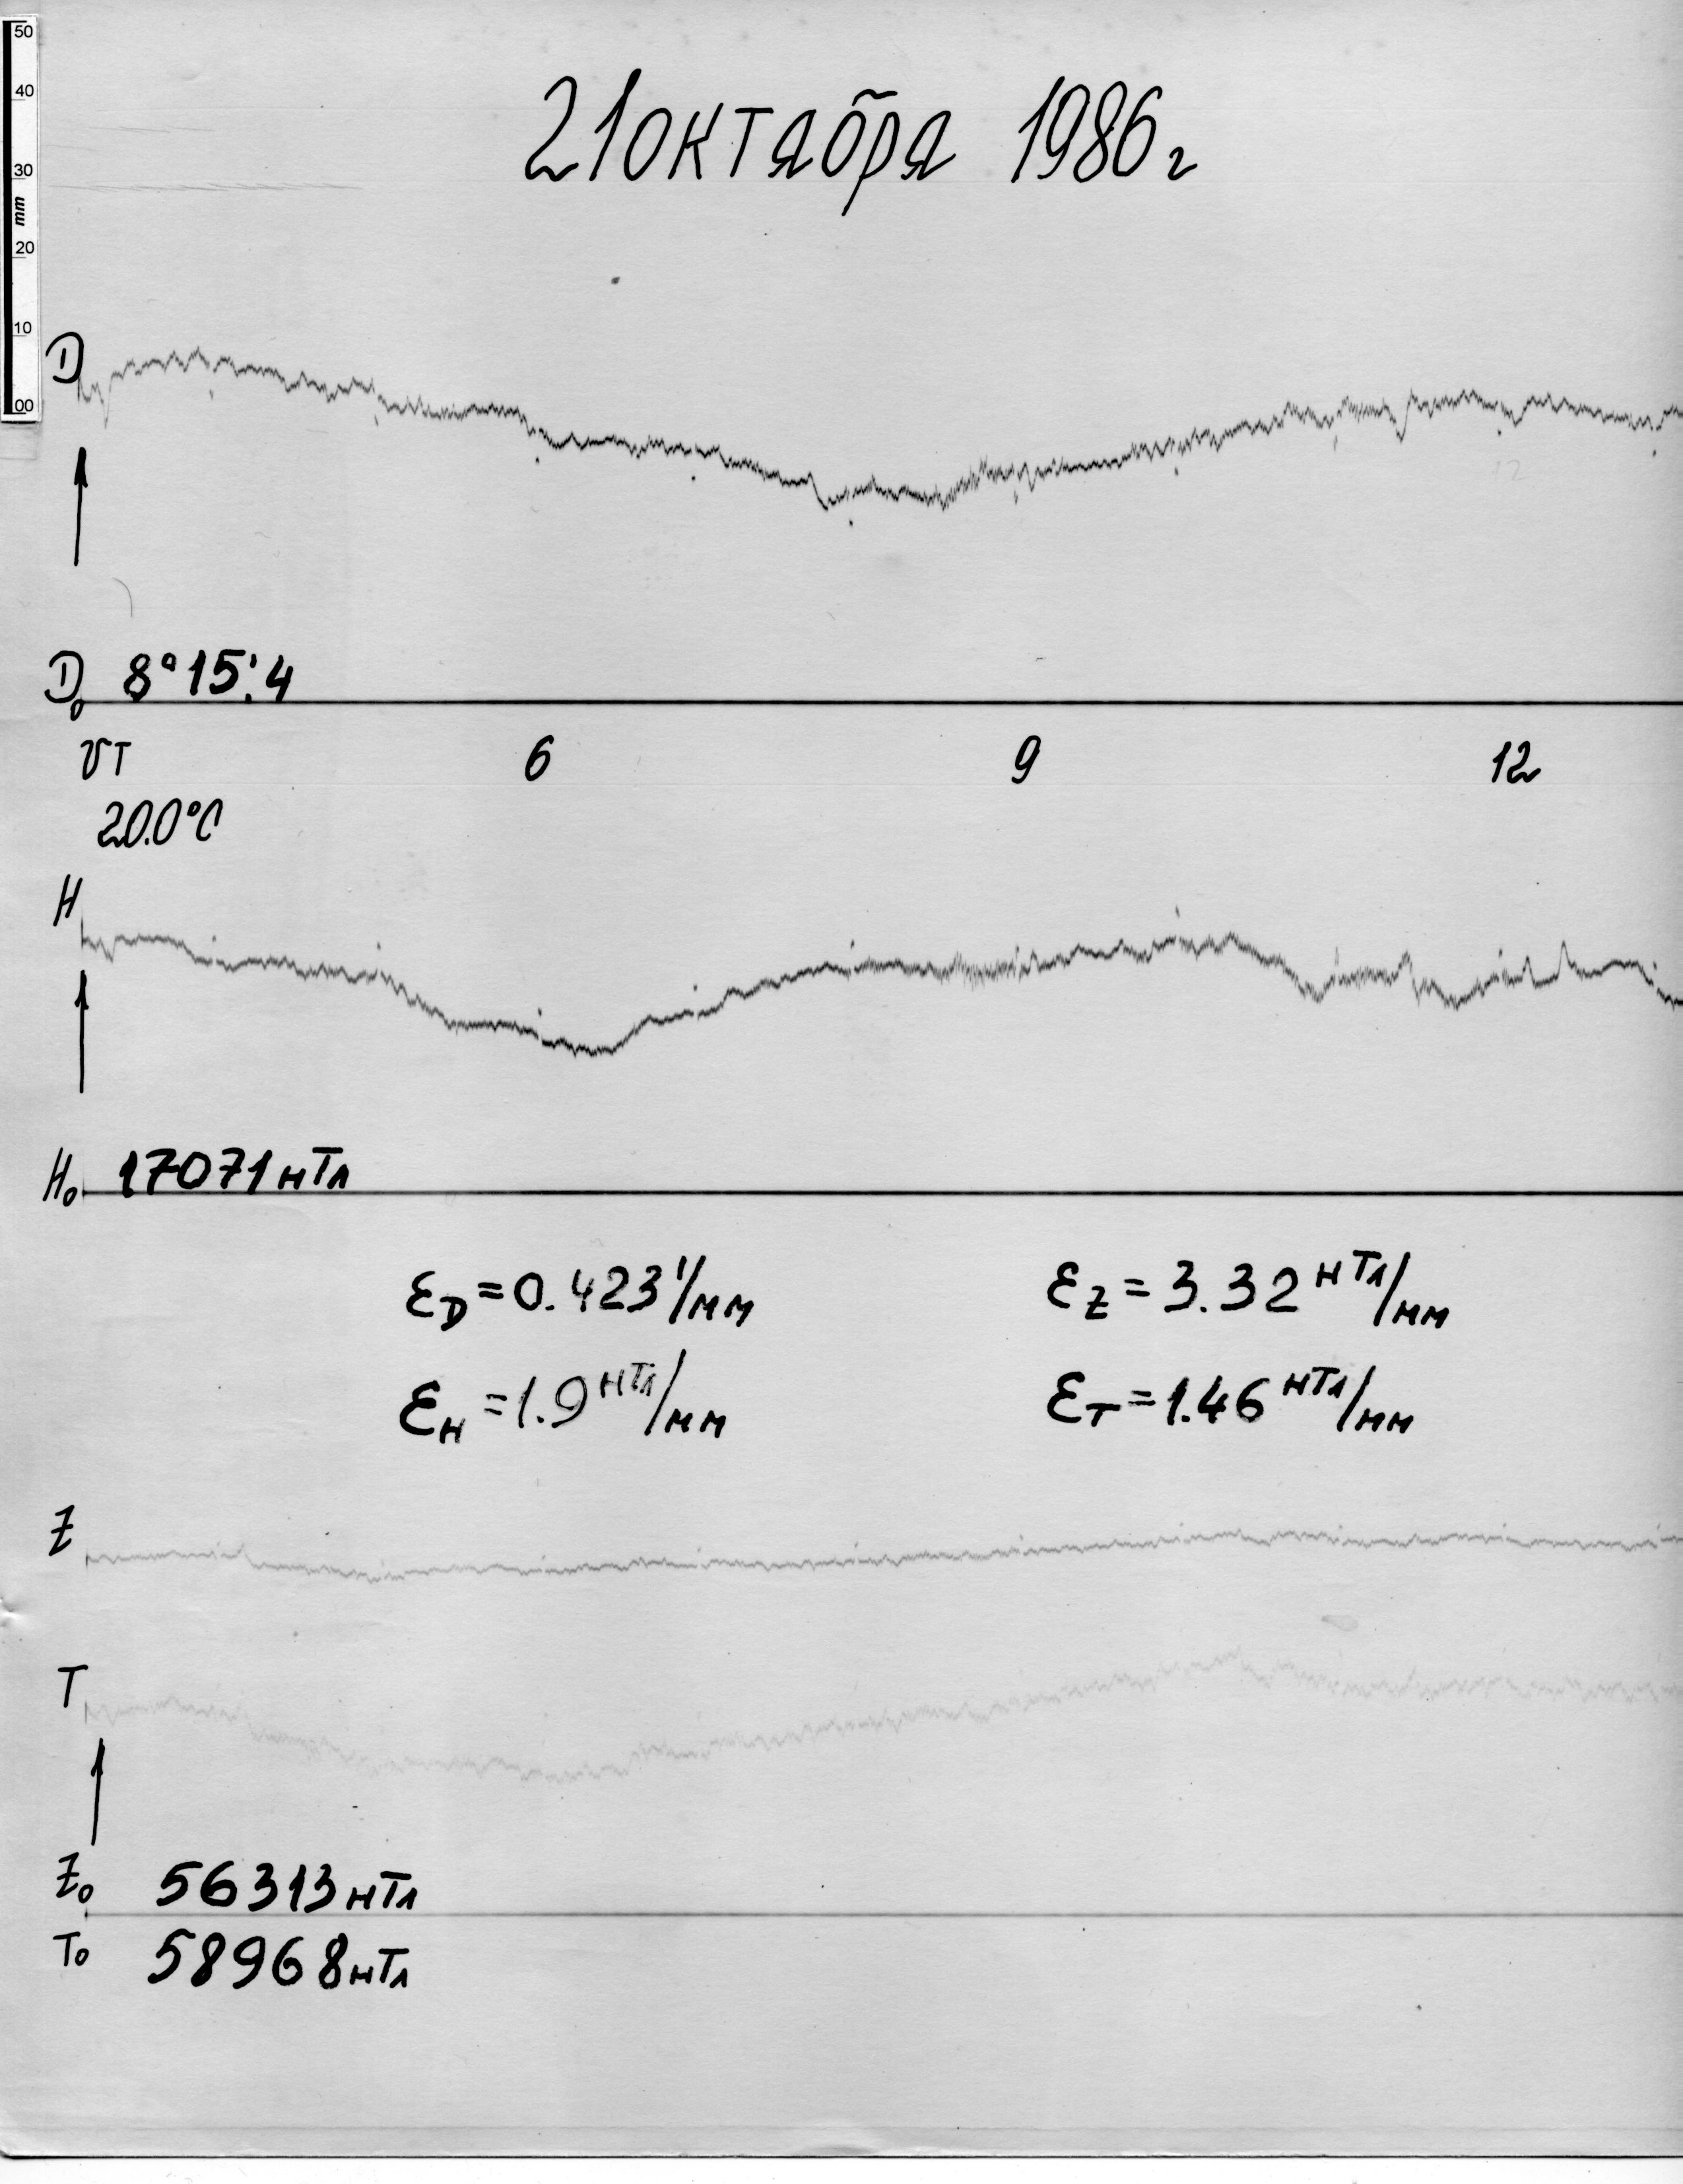 50
40
30
mm
20
10
00
21 октября 1986 г
D
D₀ 8°15'.4
UT 6 9 12
20.0°C
H
H₀ 17071 нТл
εD = 0.423'/мм εZ = 3.32 нТл/мм
εH = 1.9 нТл/мм εT = 1.46 нТл/мм
Z
T
Z₀ 56313 нТл
T₀ 58968 нТл